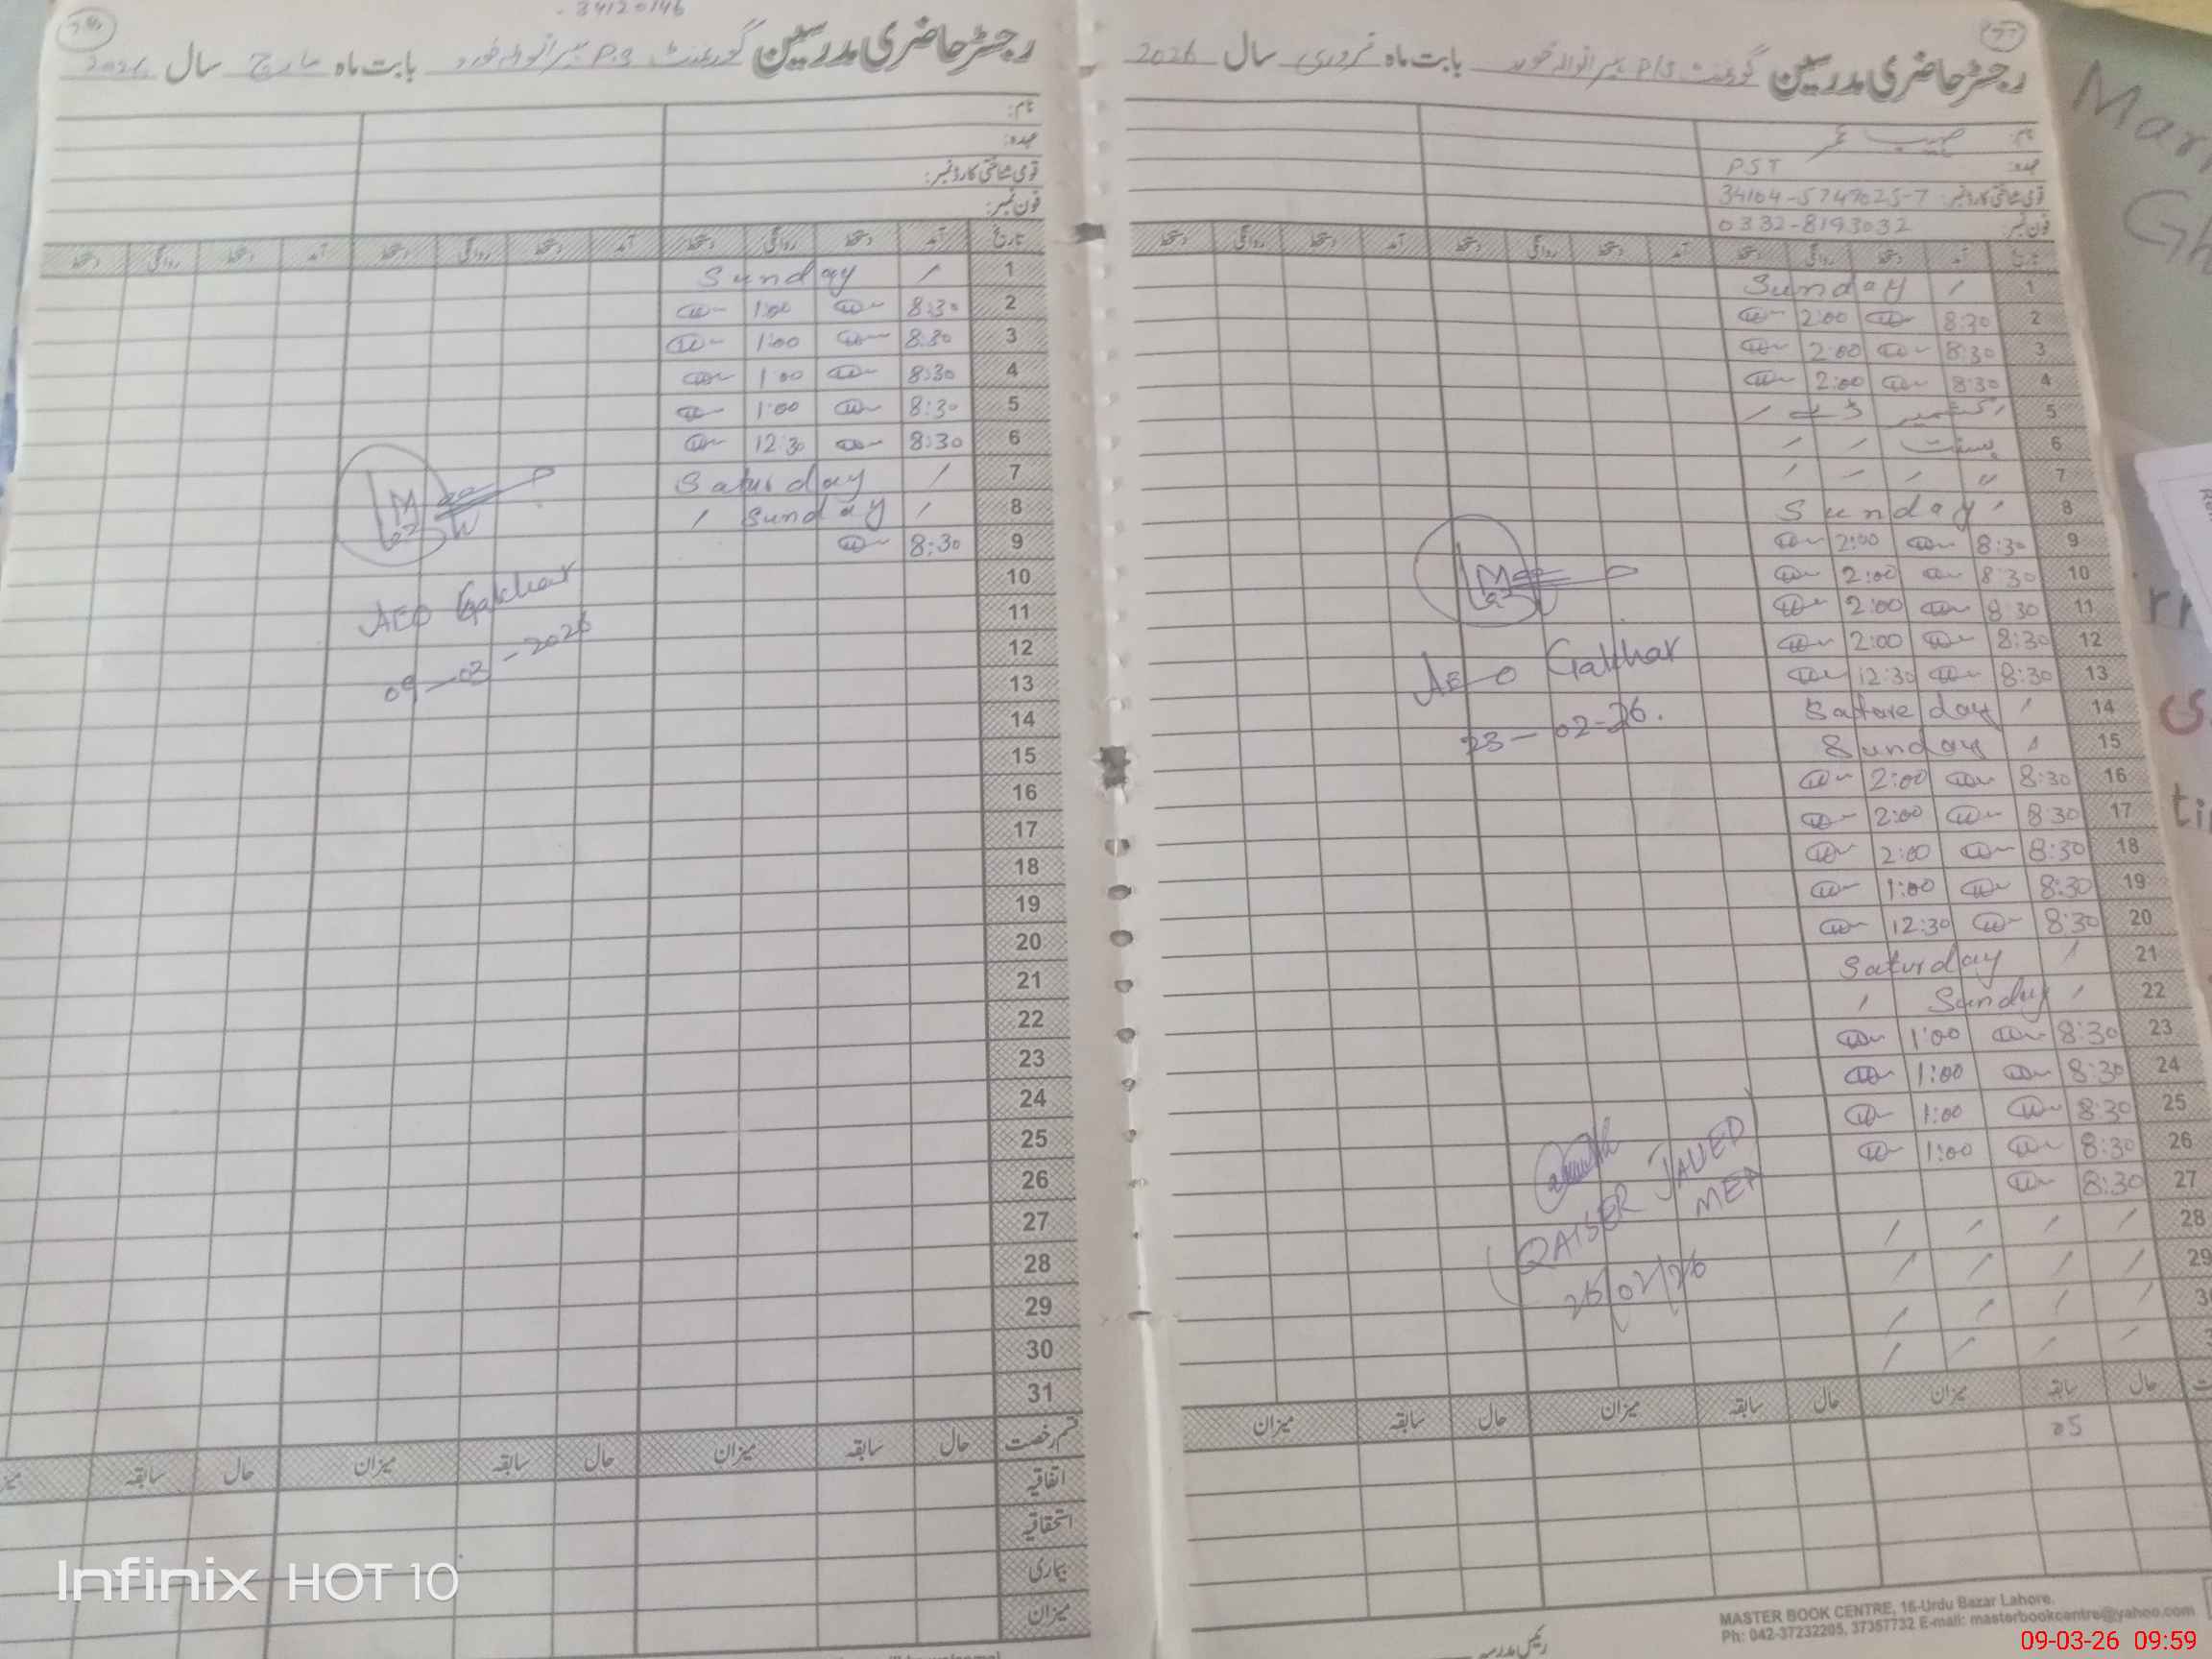 34120146
رجسٹر حاضری مدرسین گورنمنٹ P/S بیرانوالہ خورد بابت ماہ فروری سال 2026
نام:
عہدہ: PST
قومی شناختی کارڈ نمبر: 34104-5747025-7
فون نمبر: 0332-8193032
تاریخ آمد دستخط روانگی دستخط آمد دستخط روانگی دستخط آمد دستخط روانگی دستخط
1 Sunday
2 8:30 2:00
3 8:30 2:00
4 8:30 2:00
5 کشمیر ڈے
6 بسنت
7 "
8 Sunday
9 8:30 2:00
10 8:30 2:00
11 8:30 2:00
12 8:30 2:00
13 8:30 12:30
14 Sature day
15 Sunday
16 8:30 2:00
17 8:30 2:00
18 8:30 2:00
19 8:30 1:00
20 8:30 12:30
21 Saturday
22 Sunday
23 8:30 1:00
24 8:30 1:00
25 8:30 1:00
26 8:30 1:00
27 8:30
28
29
AEO Gakhar
23-02-26.
QAISER JAVED
MEA
26/02/26
حال سابقہ میزان حال سابقہ میزان حال سابقہ میزان
05
رئیس مدرسہ
MASTER BOOK CENTRE, 16-Urdu Bazar Lahore.
Ph: 042-37232205, 37357732 E-mail: masterbookcentre@yahoo.com
رجسٹر حاضری مدرسین گورنمنٹ P.S بیرانوالہ خورد بابت ماہ مارچ سال 2026
نام:
عہدہ:
قومی شناختی کارڈ نمبر:
فون نمبر:
تاریخ آمد دستخط روانگی دستخط آمد دستخط روانگی دستخط آمد دستخط روانگی دستخط
1 Sunday
2 8:30 1:00
3 8:30 1:00
4 8:30 1:00
5 8:30 1:00
6 8:30 12:30
7 Saturday
8 Sunday
9 8:30
10
11
12
13
14
15
16
17
18
19
20
21
22
23
24
25
26
27
28
29
30
31
AEO Gakhar
09-03-2026
قسم رخصت حال سابقہ میزان حال سابقہ میزان حال سابقہ میزان
اتفاقیہ
استحقاقیہ
بیماری
میزان
Infinix HOT 10
09-03-26 09:59